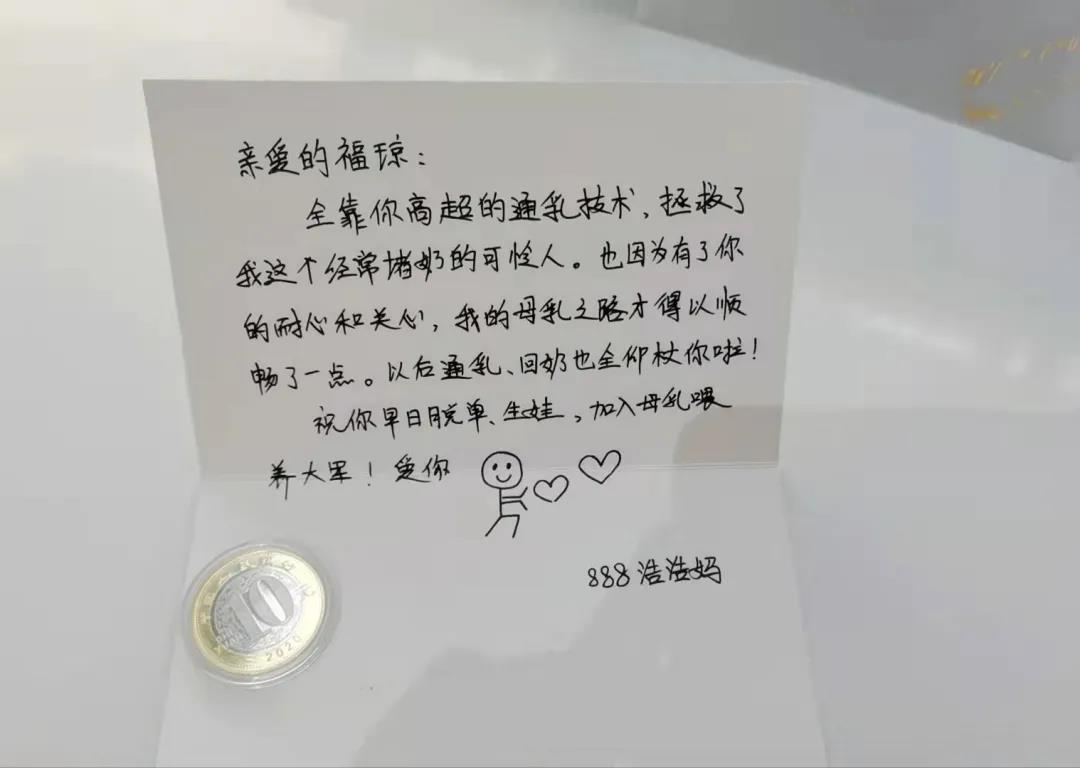 亲爱的福琼：
全靠你高超的通乳技术，拯救了
我这个经常堵奶的可怜人。也因为有了你
的耐心和关心，我的母乳之路才得以顺
畅了一点。以后通乳、回奶也全仰杖你啦！
祝你早日脱单、生娃，加入母乳喂
养大军！爱你
888浩浩妈
中国人民银行
10
2020